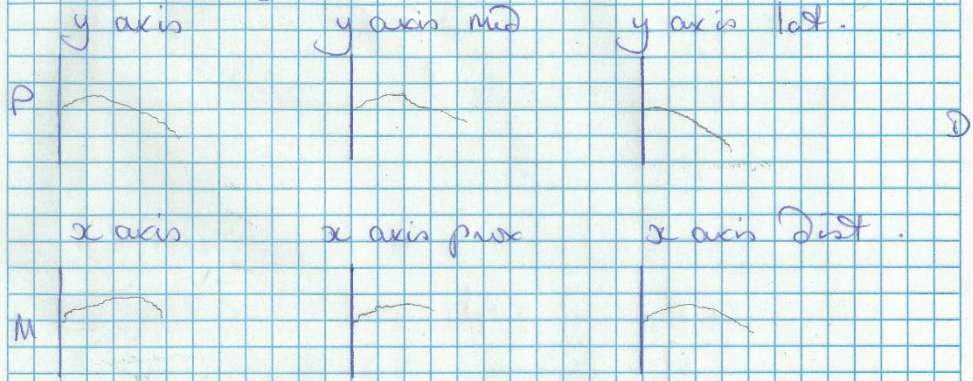 y axis y axis med y axis lat.
P D
x axis x axis prox x axis Dist.
M